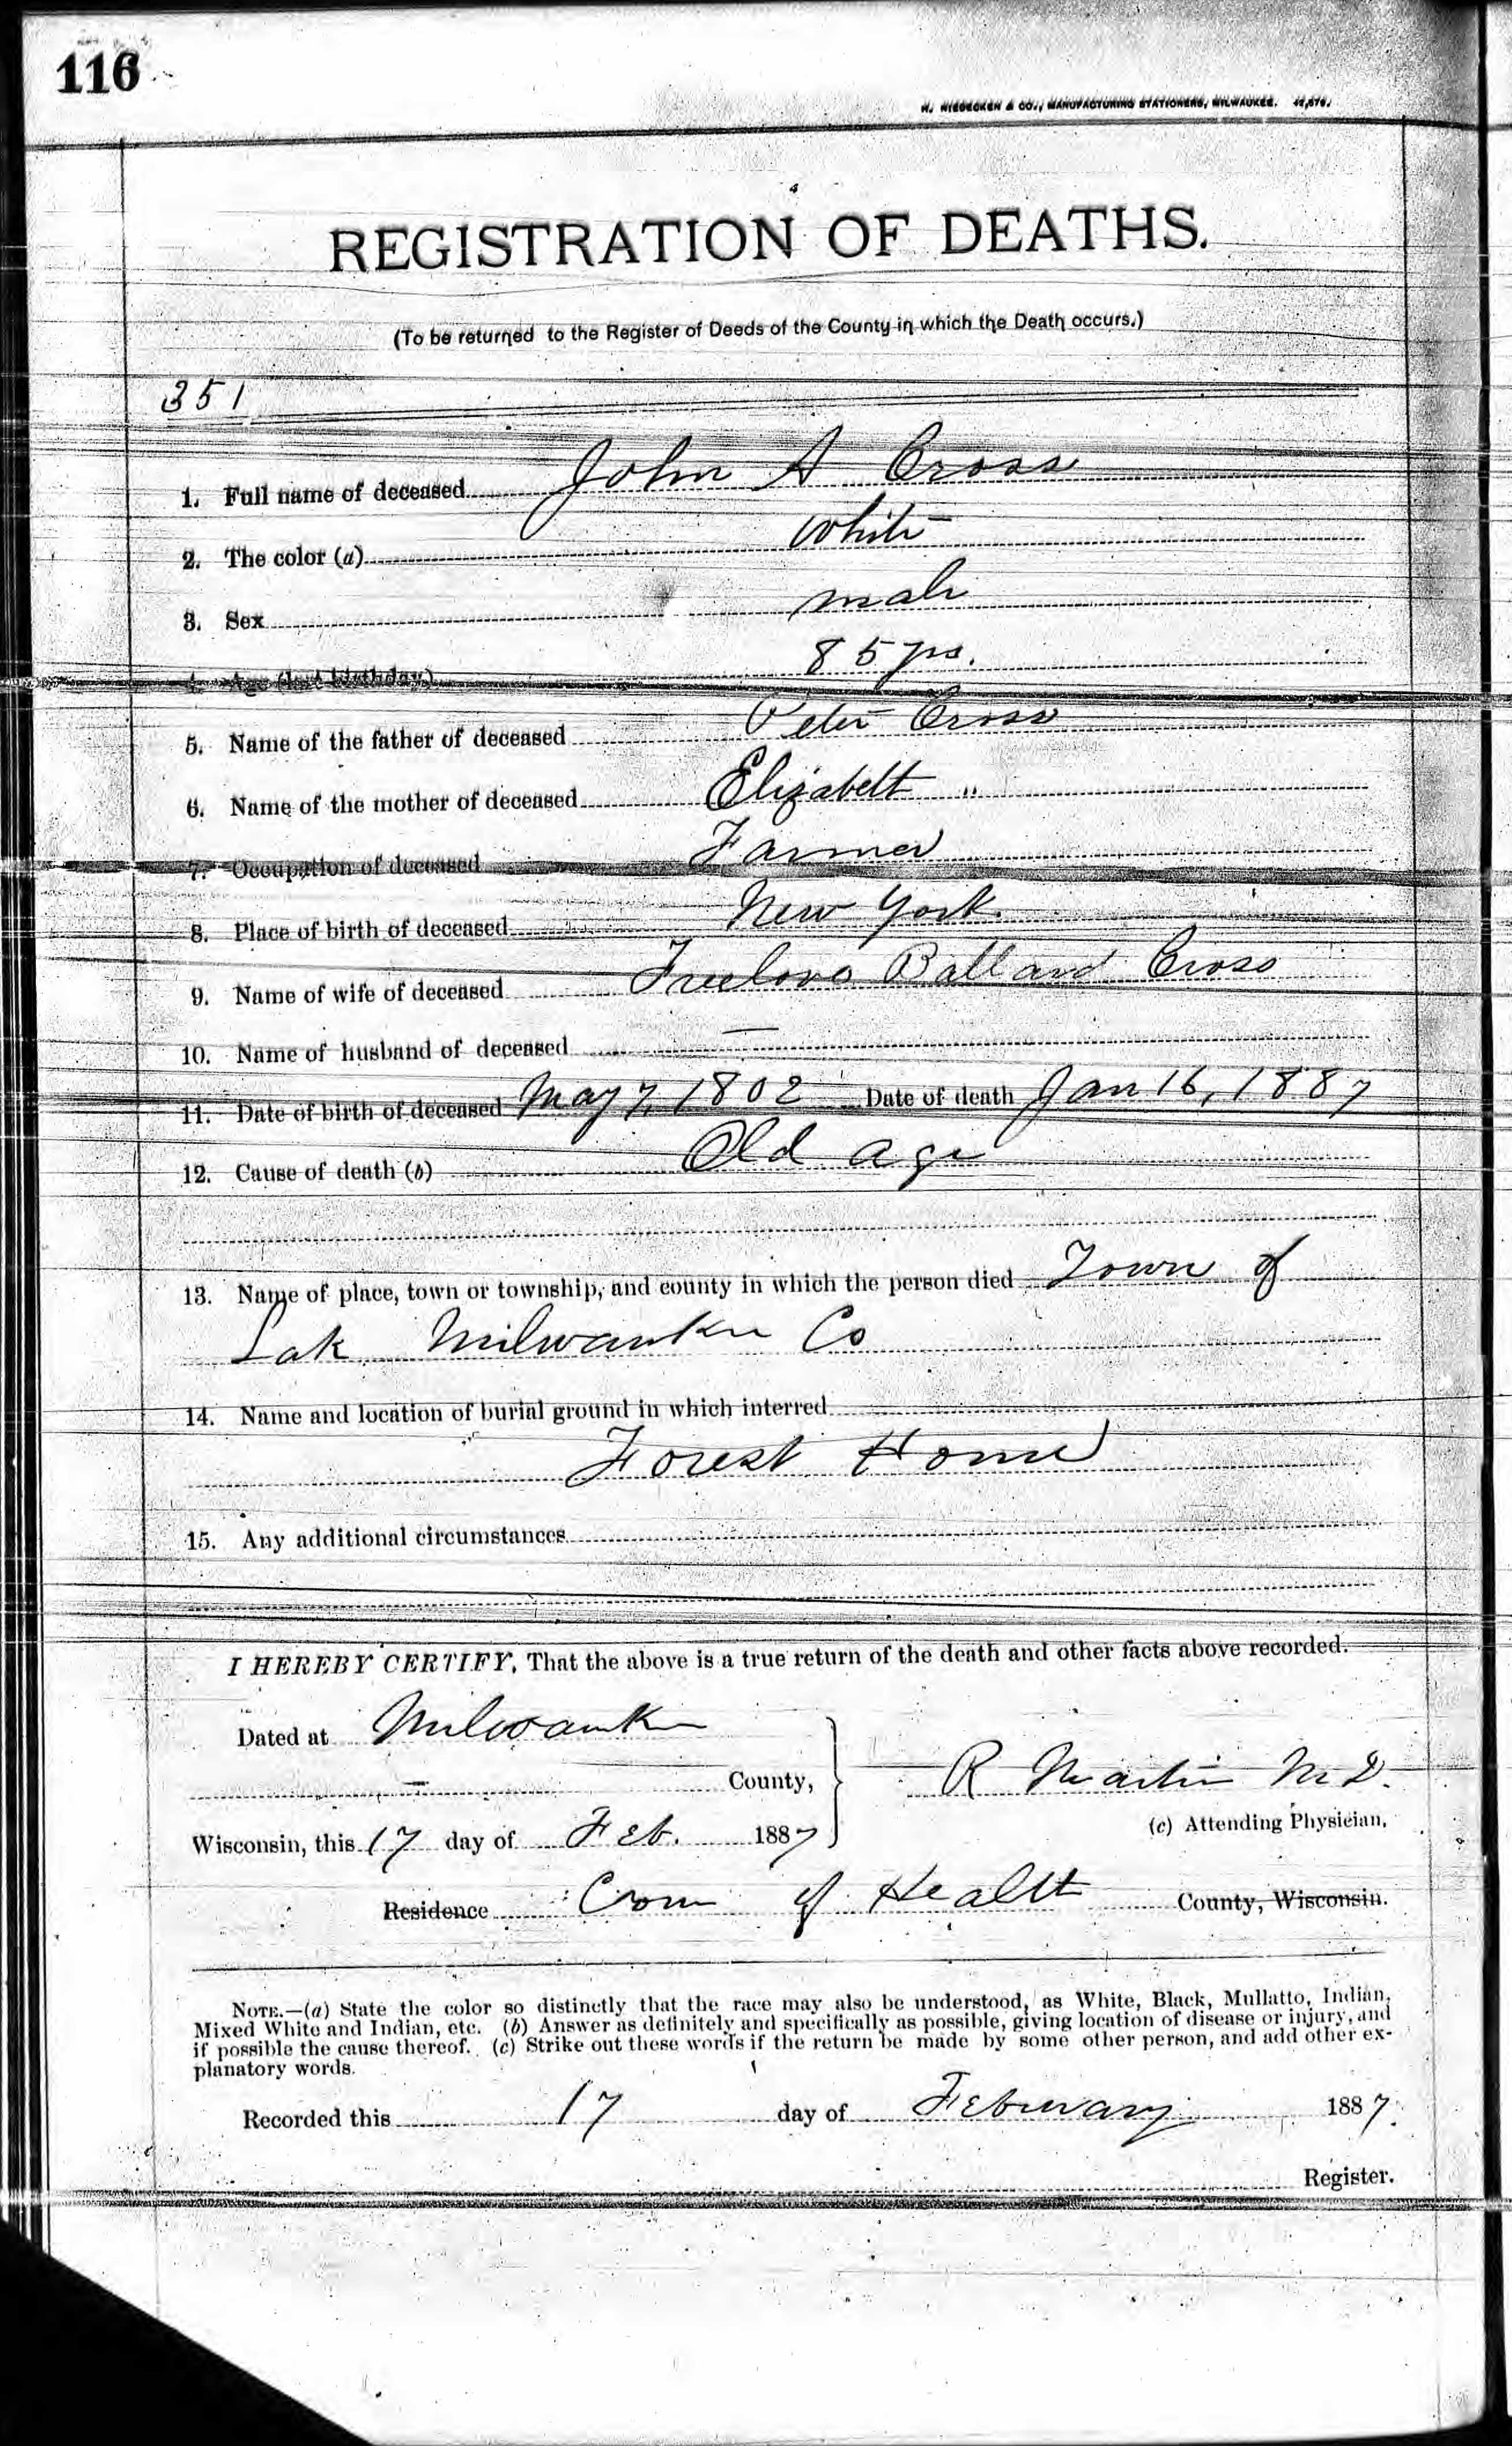 116
H. NIEDECKEN & CO., MANUFACTURING STATIONERS, MILWAUKEE.
REGISTRATION OF DEATHS.
(To be returned to the Register of Deeds of the County in which the Death occurs.)
351
1. Full name of deceased John A Cross
2. The color (a) White
3. Sex male
4. Age (last birthday) 85 yrs.
5. Name of the father of deceased Peter Cross
6. Name of the mother of deceased Elizabeth "
7. Occupation of deceased Farmer
8. Place of birth of deceased New York
9. Name of wife of deceased Freelove Ballard Cross
10. Name of husband of deceased —
11. Date of birth of deceased May 7, 1802 Date of death Jan 16, 1887
12. Cause of death (b) Old age
13. Name of place, town or township, and county in which the person died Town of
Lake Milwaukee Co
14. Name and location of burial ground in which interred
Forest Home
15. Any additional circumstances
I HEREBY CERTIFY, That the above is a true return of the death and other facts above recorded.
Dated at Milwaukee
— County,
R Martin M.D.
(c) Attending Physician,
Wisconsin, this 17 day of Feb. 1887
Residence Com of Health County, Wisconsin.
NOTE.—(a) State the color so distinctly that the race may also be understood, as White, Black, Mullatto, Indian,
Mixed White and Indian, etc. (b) Answer as definitely and specifically as possible, giving location of disease or injury, and
if possible the cause thereof. (c) Strike out these words if the return be made by some other person, and add other ex-
planatory words.
Recorded this 17 day of February 1887.
Register.